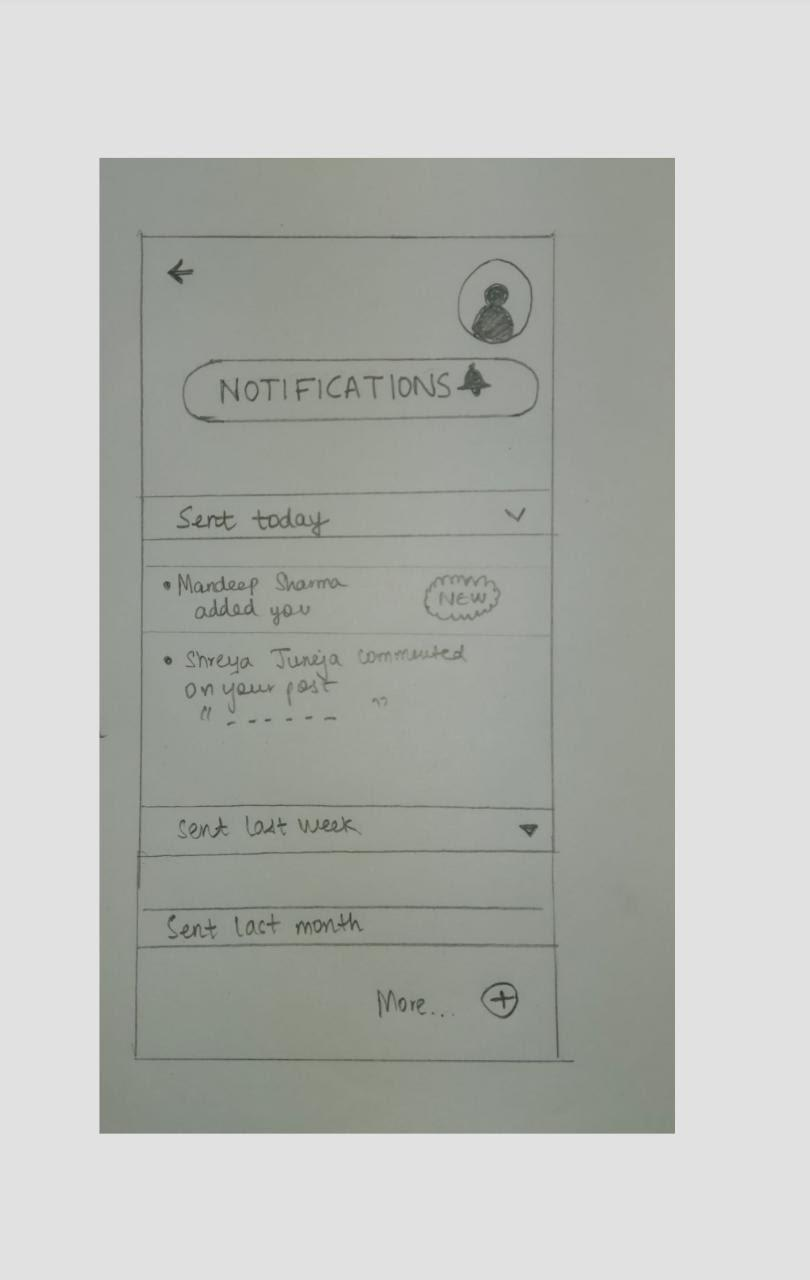 NOTIFICATIONS
Sent today
• Mandeep Sharma
added you
NEW
• Shreya Juneja commented
on your post
" - - - - - - "
Sent last week
Sent last month
More...